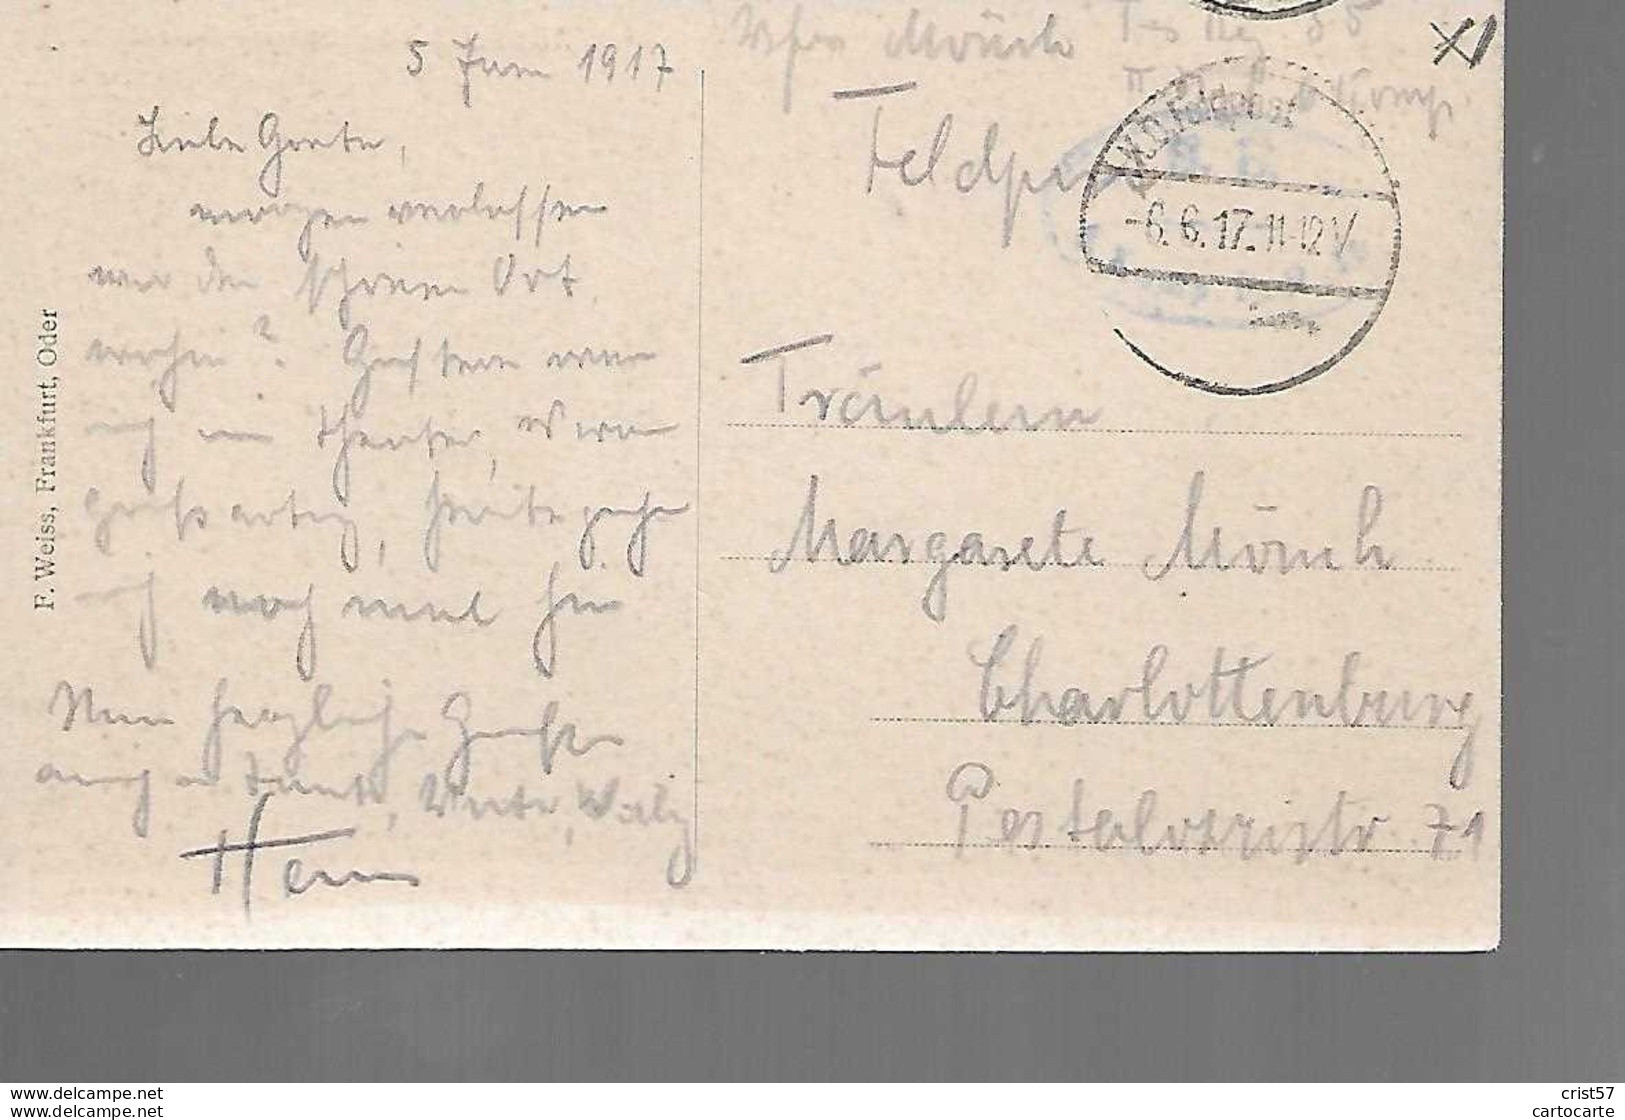 5 Juni 1917
Liebe Grete,
morgen verlassen
wir den schönen Ort.
wohin? Gestern war
ich im Theater, es war
großartig, heute gehe
ich noch mal hin
Nun herzliche Grüße
auch an Tante, Walz
Hans
F. Weiss, Frankfurt, Oder
Mönch Res Reg 35
II. Komp.
Feldpost
K.D. Feldpost
-6.6.17.11-12V
Fräulein
Margarete Mönch
Charlottenburg
Pestalozzistr 71
crist57
cartocarte